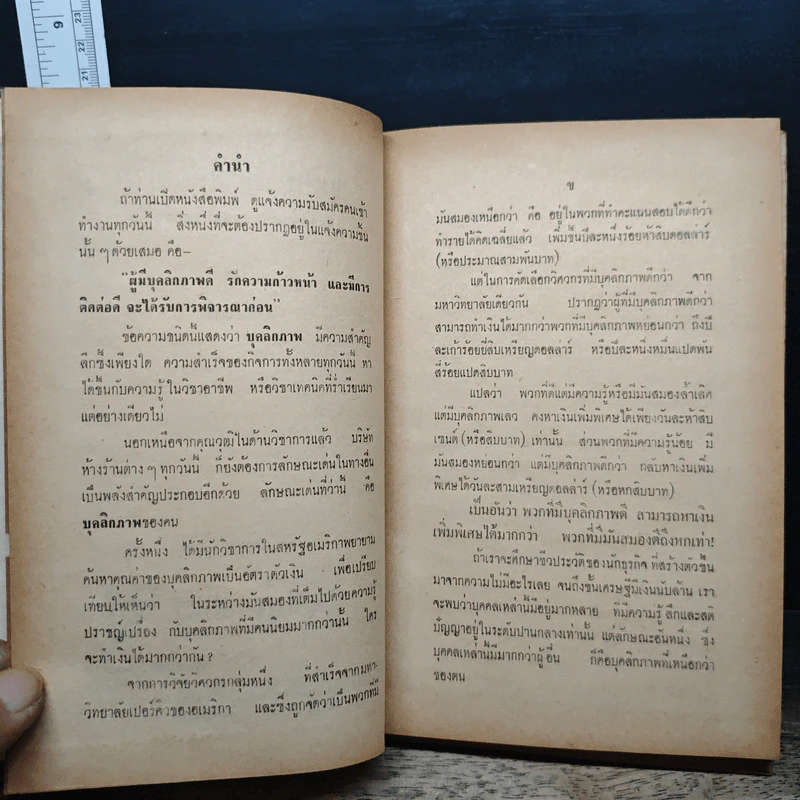 9
23
22
21
คำนำ
ถ้าท่านเปิดหนังสือพิมพ์ ดูแจ้งความรับสมัครคนเข้า
ทำงานทุกวันนี้ สิ่งหนึ่งที่จะต้องปรากฏอยู่ในแจ้งความชิ้น
นั้น ๆ ด้วยเสมอ คือ—
"ผู้มีบุคลิกภาพดี รักความก้าวหน้า และมีการ
ติดต่อดี จะได้รับการพิจารณาก่อน"
ข้อความชนิดนี้แสดงว่า บุคลิกภาพ มีความสำคัญ
ลึกซึ้งเพียงใด ความสำเร็จของกิจการทั้งหลายทุกวันนี้ หา
ได้ขึ้นกับความรู้ในวิชาอาชีพ หรือวิชาเทคนิคที่ร่ำเรียนมา
แต่อย่างเดียวไม่
นอกเหนือจากคุณวุฒิในด้านวิชาการแล้ว บริษัท
ห้างร้านต่าง ๆ ทุกวันนี้ ก็ยังต้องการลักษณะเด่นในทางอื่น
เป็นพลังสำคัญประกอบอีกด้วย ลักษณะเด่นที่ว่านี้ คือ
บุคลิกภาพของคน
ครั้งหนึ่ง ได้มีนักวิชาการในสหรัฐอเมริกาพยายาม
ค้นหาคุณค่าของบุคลิกภาพเป็นอัตราตัวเงิน เพื่อเปรียบ
เทียบให้เห็นว่า ในระหว่างมันสมองที่เต็มไปด้วยความรู้
ปราชญ์เปรื่อง กับบุคลิกภาพที่มีคนนิยมมากกว่านั้น ใคร
จะทำเงินได้มากกว่ากัน?
จากการวิจัยวิศวกรกลุ่มหนึ่ง ที่สำเร็จจากมหา-
วิทยาลัยเปอร์ดิวของอเมริกา และซึ่งถูกจัดว่าเป็นพวกที่มี
ข
มันสมองเหนือกว่า คือ อยู่ในพวกที่ทำคะแนนสอบได้ดีกว่า
ทำรายได้คิดเฉลี่ยแล้ว เพิ่มขึ้นปีละหนึ่งร้อยห้าสิบดอลล่าร์
(หรือประมาณสามพันบาท)
แต่ในการคัดเลือกวิศวกรที่มีบุคลิกภาพดีกว่า จาก
มหาวิทยาลัยเดียวกัน ปรากฏว่าผู้ที่มีบุคลิกภาพดีกว่า
สามารถทำเงินได้มากกว่าพวกที่มีบุคลิกภาพหย่อนกว่า ถึงปี
ละเก้าร้อยยี่สิบเหรียญดอลล่าร์ หรือปีละหนึ่งหมื่นแปดพัน
สี่ร้อยแปดสิบบาท
แปลว่า พวกที่ดีแต่มีความรู้หรือมีมันสมองล้ำเลิศ
แต่มีบุคลิกภาพเลว คงหาเงินเพิ่มพิเศษได้เพียงวันละห้าสิบ
เซนต์ (หรือสิบบาท) เท่านั้น ส่วนพวกที่มีความรู้น้อย มี
มันสมองหย่อนกว่า แต่มีบุคลิกภาพดีกว่า กลับหาเงินเพิ่ม
พิเศษได้วันละสามเหรียญดอลล่าร์ (หรือหกสิบบาท)
เป็นอันว่า พวกที่มีบุคลิกภาพดี สามารถหาเงิน
เพิ่มพิเศษได้มากกว่า พวกที่มีมันสมองดีถึงหกเท่า!
ถ้าเราจะศึกษาชีวประวัติของนักธุรกิจ ที่สร้างตัวขึ้น
มาจากความไม่มีอะไรเลย จนถึงขั้นเศรษฐีมีเงินนับล้าน เรา
จะพบว่าบุคคลเหล่านี้มีอยู่มากหลาย ที่มีความรู้สึกและสติ
ปัญญาอยู่ในระดับปานกลางเท่านั้น แต่ลักษณะอันหนึ่ง ซึ่ง
บุคคลเหล่านี้มีมากกว่าผู้อื่น ก็คือบุคลิกภาพที่เหนือกว่า
ของตน